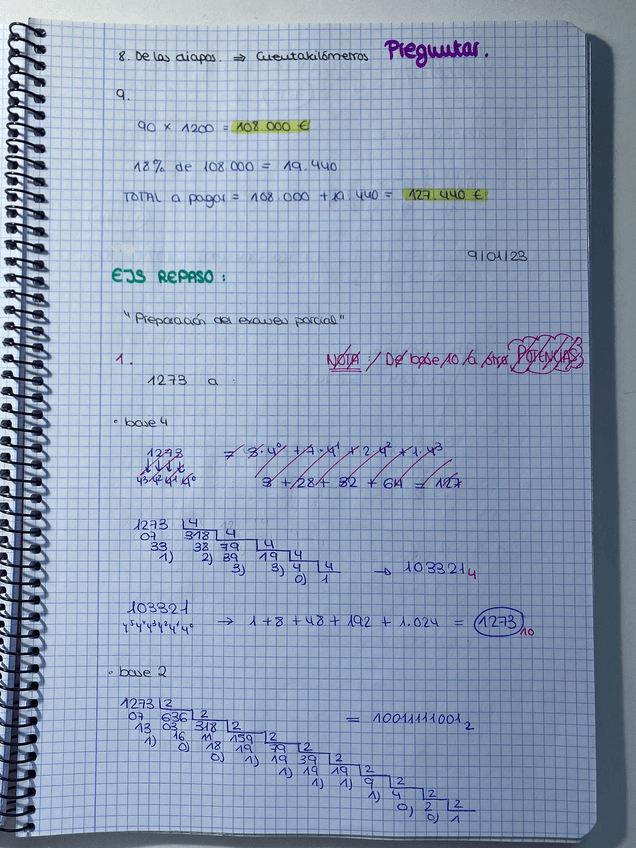 8. De las diapos. ⇒ Cuentakilómetros Preguntar.
9.
90 x 1200 = 108.000 €
18% de 108.000 = 19.440
TOTAL a pagar = 108.000 + 19.440 = 127.440 €
9/01/23
EJS REPASO:
"Preparación del examen parcial"
1. NOTA: / De base 10 a otra POTENCIAS
1273 a :
· base 4
1273 = 3·4⁰ + 7·4¹ + 2·4² + 1·4³
4³ 4² 4¹ 4⁰ 3 + 28 + 32 + 64 = 127
1273 4
07 318 4
33 38 79 4
1) 2) 39 19 4
3) 3) 4 4 → 103321₄
0) 1
103321
4⁵4⁴4³4²4¹4⁰ → 1+8+48+192+1.024 = 1273₁₀
· base 2
1273 2
07 636 2 = 10011111001₂
13 03 318 2
1) 16 11 159 2
0) 18 19 79 2
0) 1) 19 39 2
1) 19 19 2
1) 1) 9 2
1) 4 2
0) 2 2
0) 1